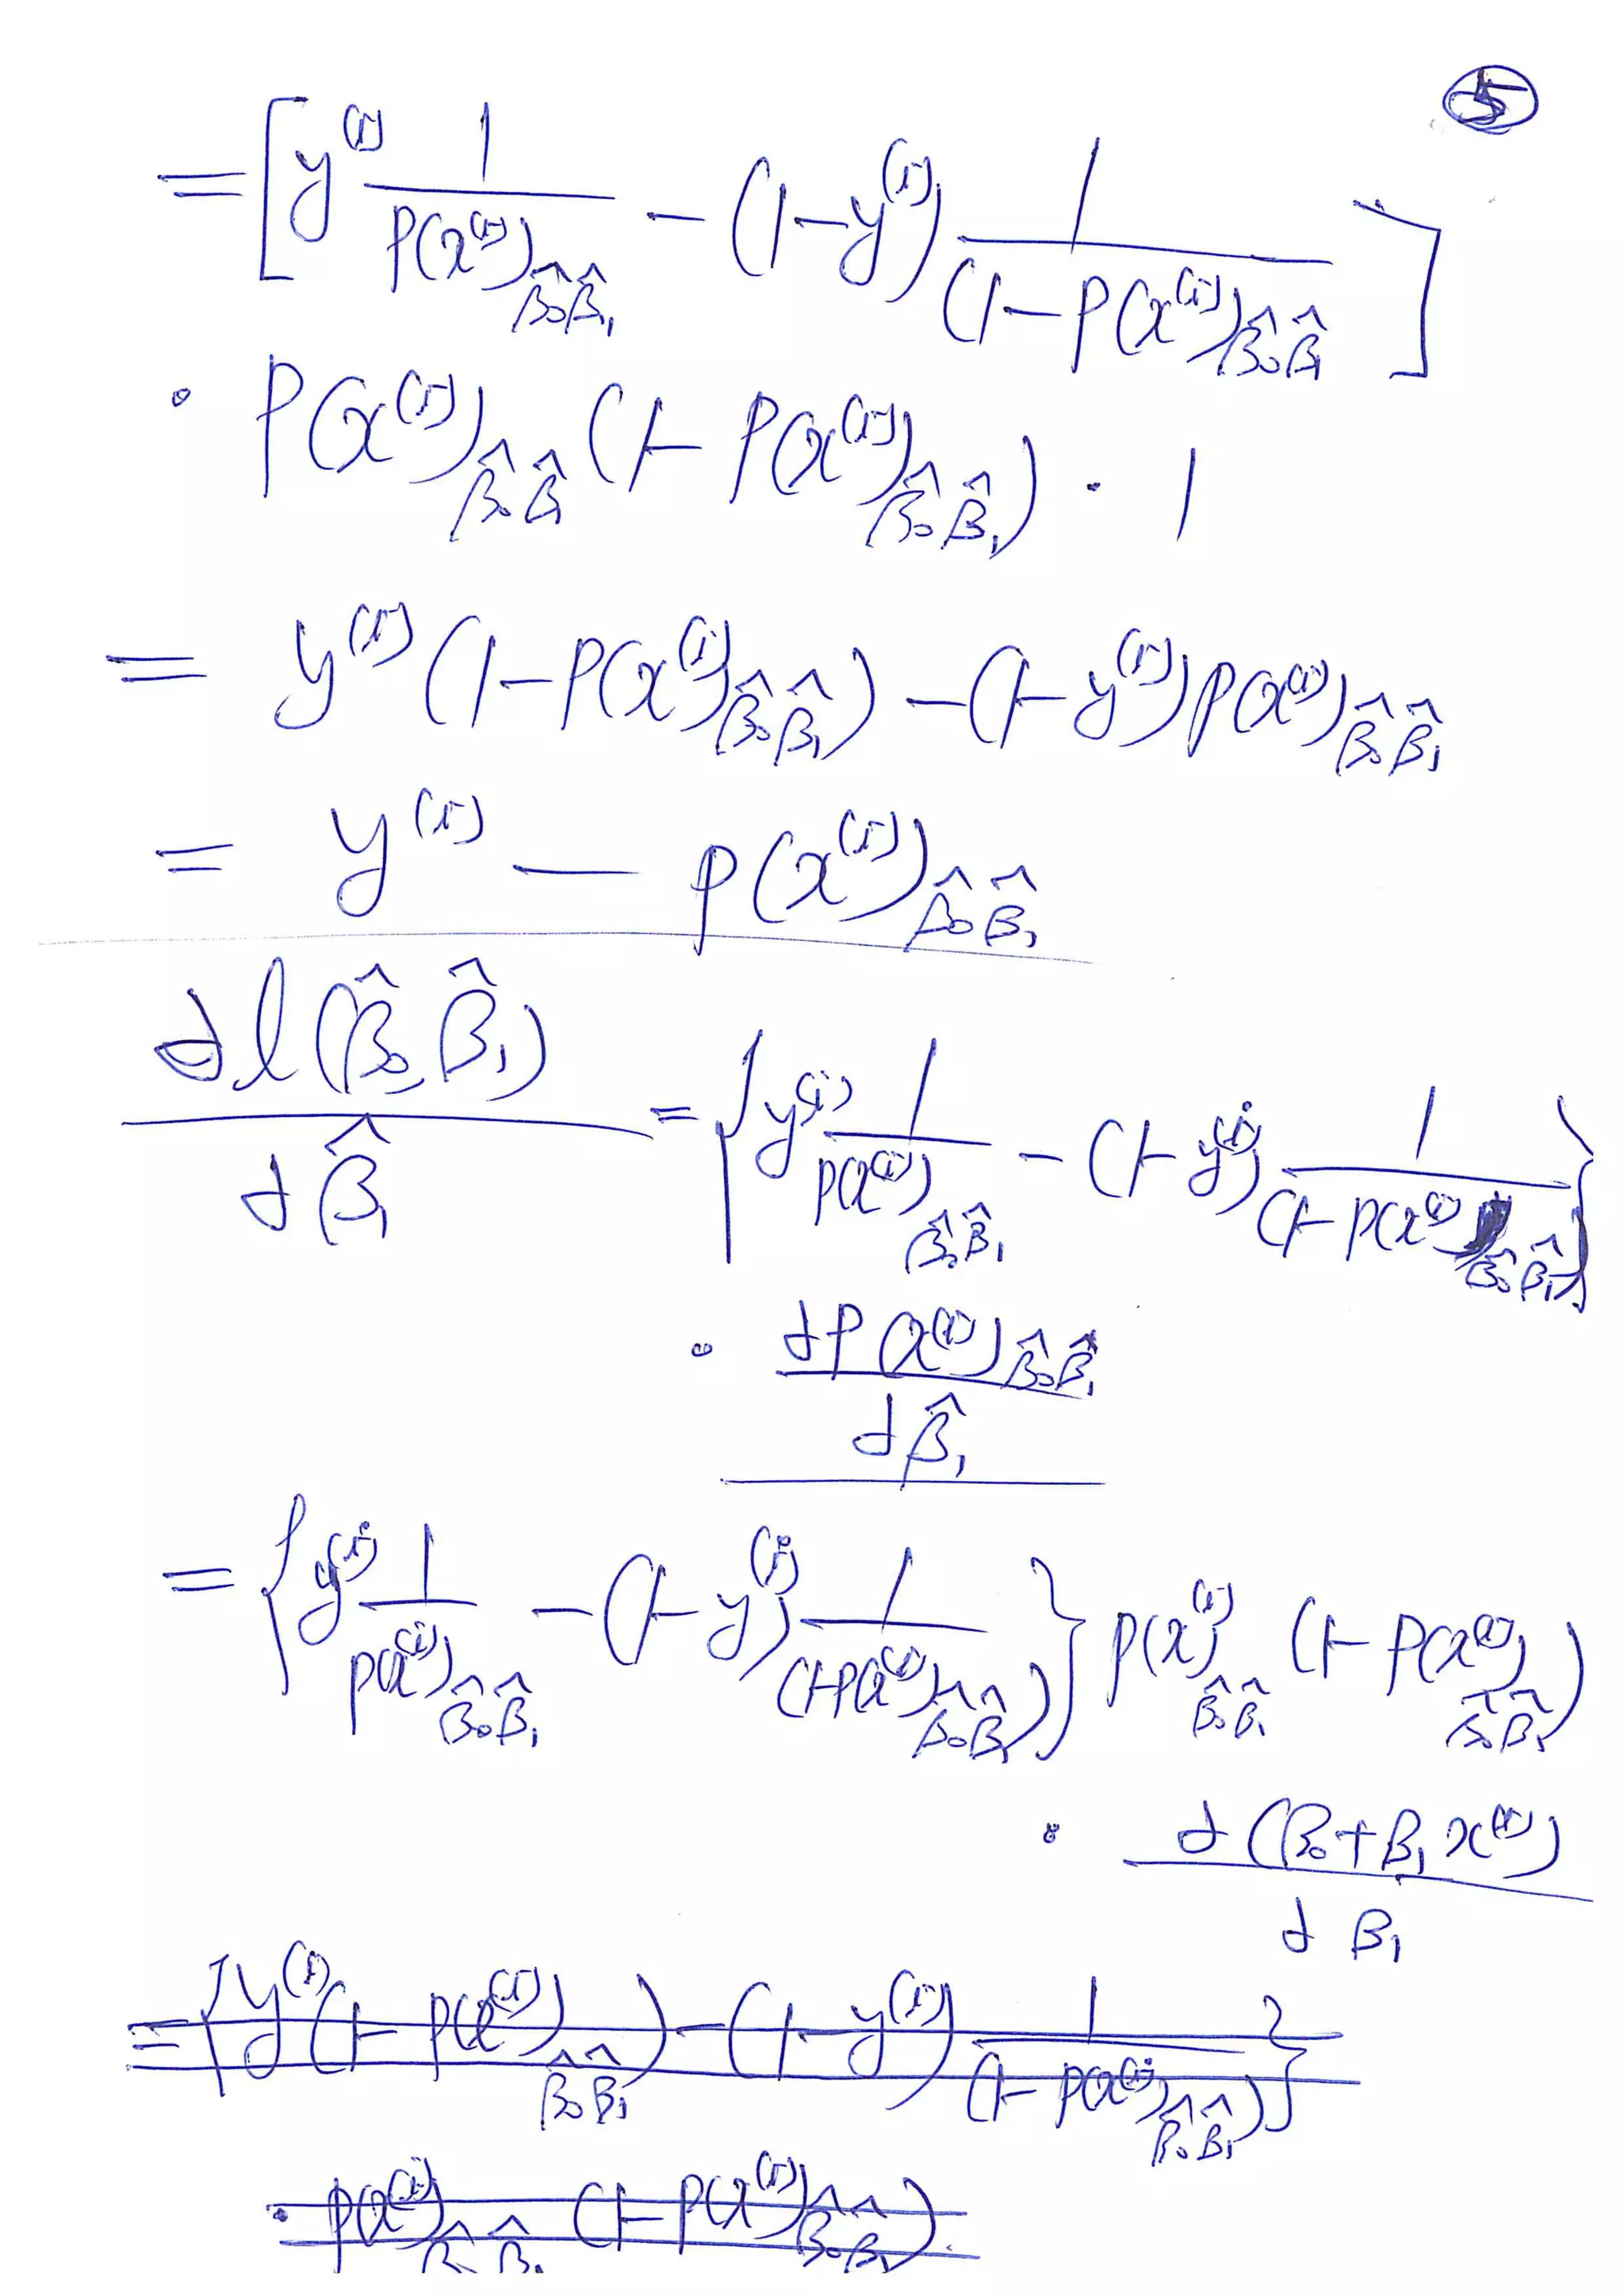 ⑤
= [ y^{(i)} \frac{1}{P(x^{(i)})_{\hat{β}_0 \hat{β}_1}} - (1 - y^{(i)}) \frac{1}{(1 - P(x^{(i)})_{\hat{β}_0 \hat{β}_1}} ]
· P(x^{(i)})_{\hat{β}_0 \hat{β}_1} (1 - P(x^{(i)})_{\hat{β}_0 \hat{β}_1}) · 1
= y^{(i)} (1 - P(x^{(i)})_{\hat{β}_0 \hat{β}_1}) - (1 - y^{(i)}) P(x^{(i)})_{\hat{β}_0 \hat{β}_1}
= y^{(i)} - P(x^{(i)})_{\hat{β}_0 \hat{β}_1}
\frac{∂ l(\hat{β}_0, \hat{β}_1)}{∂ \hat{β}_1} = { y^{(i)} \frac{1}{P(x^{(i)})_{\hat{β}_0 \hat{β}_1}} - (1 - y^{(i)}) \frac{1}{(1 - P(x^{(i)})_{\hat{β}_0 \hat{β}_1})} }
· \frac{∂ P(x^{(i)})_{\hat{β}_0 \hat{β}_1}}{∂ \hat{β}_1}
= { y^{(i)} \frac{1}{P(x^{(i)})_{\hat{β}_0 \hat{β}_1}} - (1 - y^{(i)}) \frac{1}{(1 - P(x^{(i)})_{\hat{β}_0 \hat{β}_1})} } P(x)^{(i)}_{\hat{β}_0 \hat{β}_1} (1 - P(x^{(i)})_{\hat{β}_0 \hat{β}_1})
· \frac{∂ (β_0 + β_1 x^{(i)})}{∂ β_1}
= { y^{(i)} (1 - P(x^{(i)})_{\hat{β}_0 \hat{β}_1}) - (1 - y^{(i)}) \frac{1}{(1 - P(x^{(i)})_{\hat{β}_0 \hat{β}_1})} }
· P(x^{(i)})_{\hat{β}_0 \hat{β}_1} (1 - P(x^{(i)})_{\hat{β}_0 \hat{β}_1}).